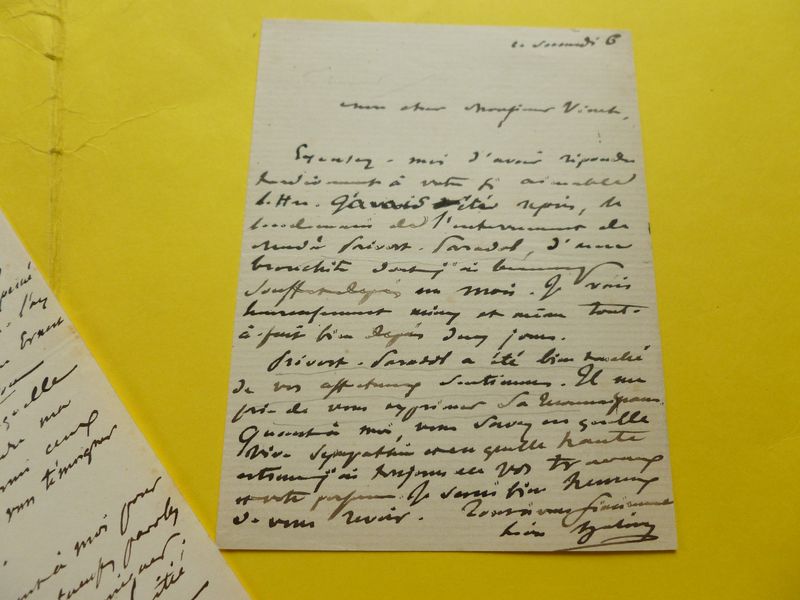 mon cher Monsieur Vinet,
Excusez-moi d'avoir répondu
tardivement à votre si aimable
lettre. J'avais été repris, le
lendemain de l'enterrement de
Mad. Prévost-Paradol, d'une
bronchite dont j'ai beaucoup
souffert depuis un mois. Je vais
heureusement mieux et même tout-
à-fait bien depuis deux jours.
Prévost-Paradol a été bien touché
de vos affectueux sentiments. Il me
prie de vous exprimer sa reconnaissance.
Quant à moi, vous savez en quelle
vive sympathie et en quelle haute
estime j'ai toujours eu vos travaux
et votre personne. Je serai bien heureux
de vous revoir. Tout à vous sincèrement
Ernest
quelle
ma
ceux
témoigner
à moi pour
paroles